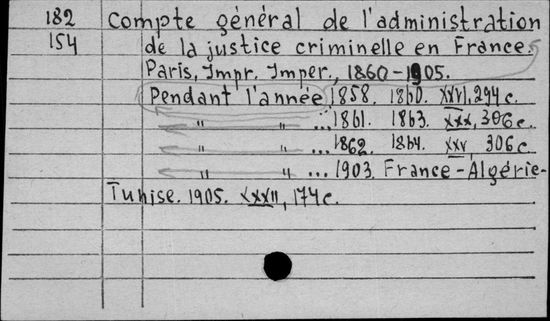 182 Compte général de l'administration
154 de la justice criminelle en France.
Paris, Impr. Imper., 1860-1905.
Pendant l'année 1858. 1860. XXVI, 294 c.
" " ... 1861. 1863. XXX, 306 c.
" " ... 1862. 1864. XXV, 306 c.
" " ... 1903. France-Algérie-
Tunise. 1905. XXXII, 174 c.